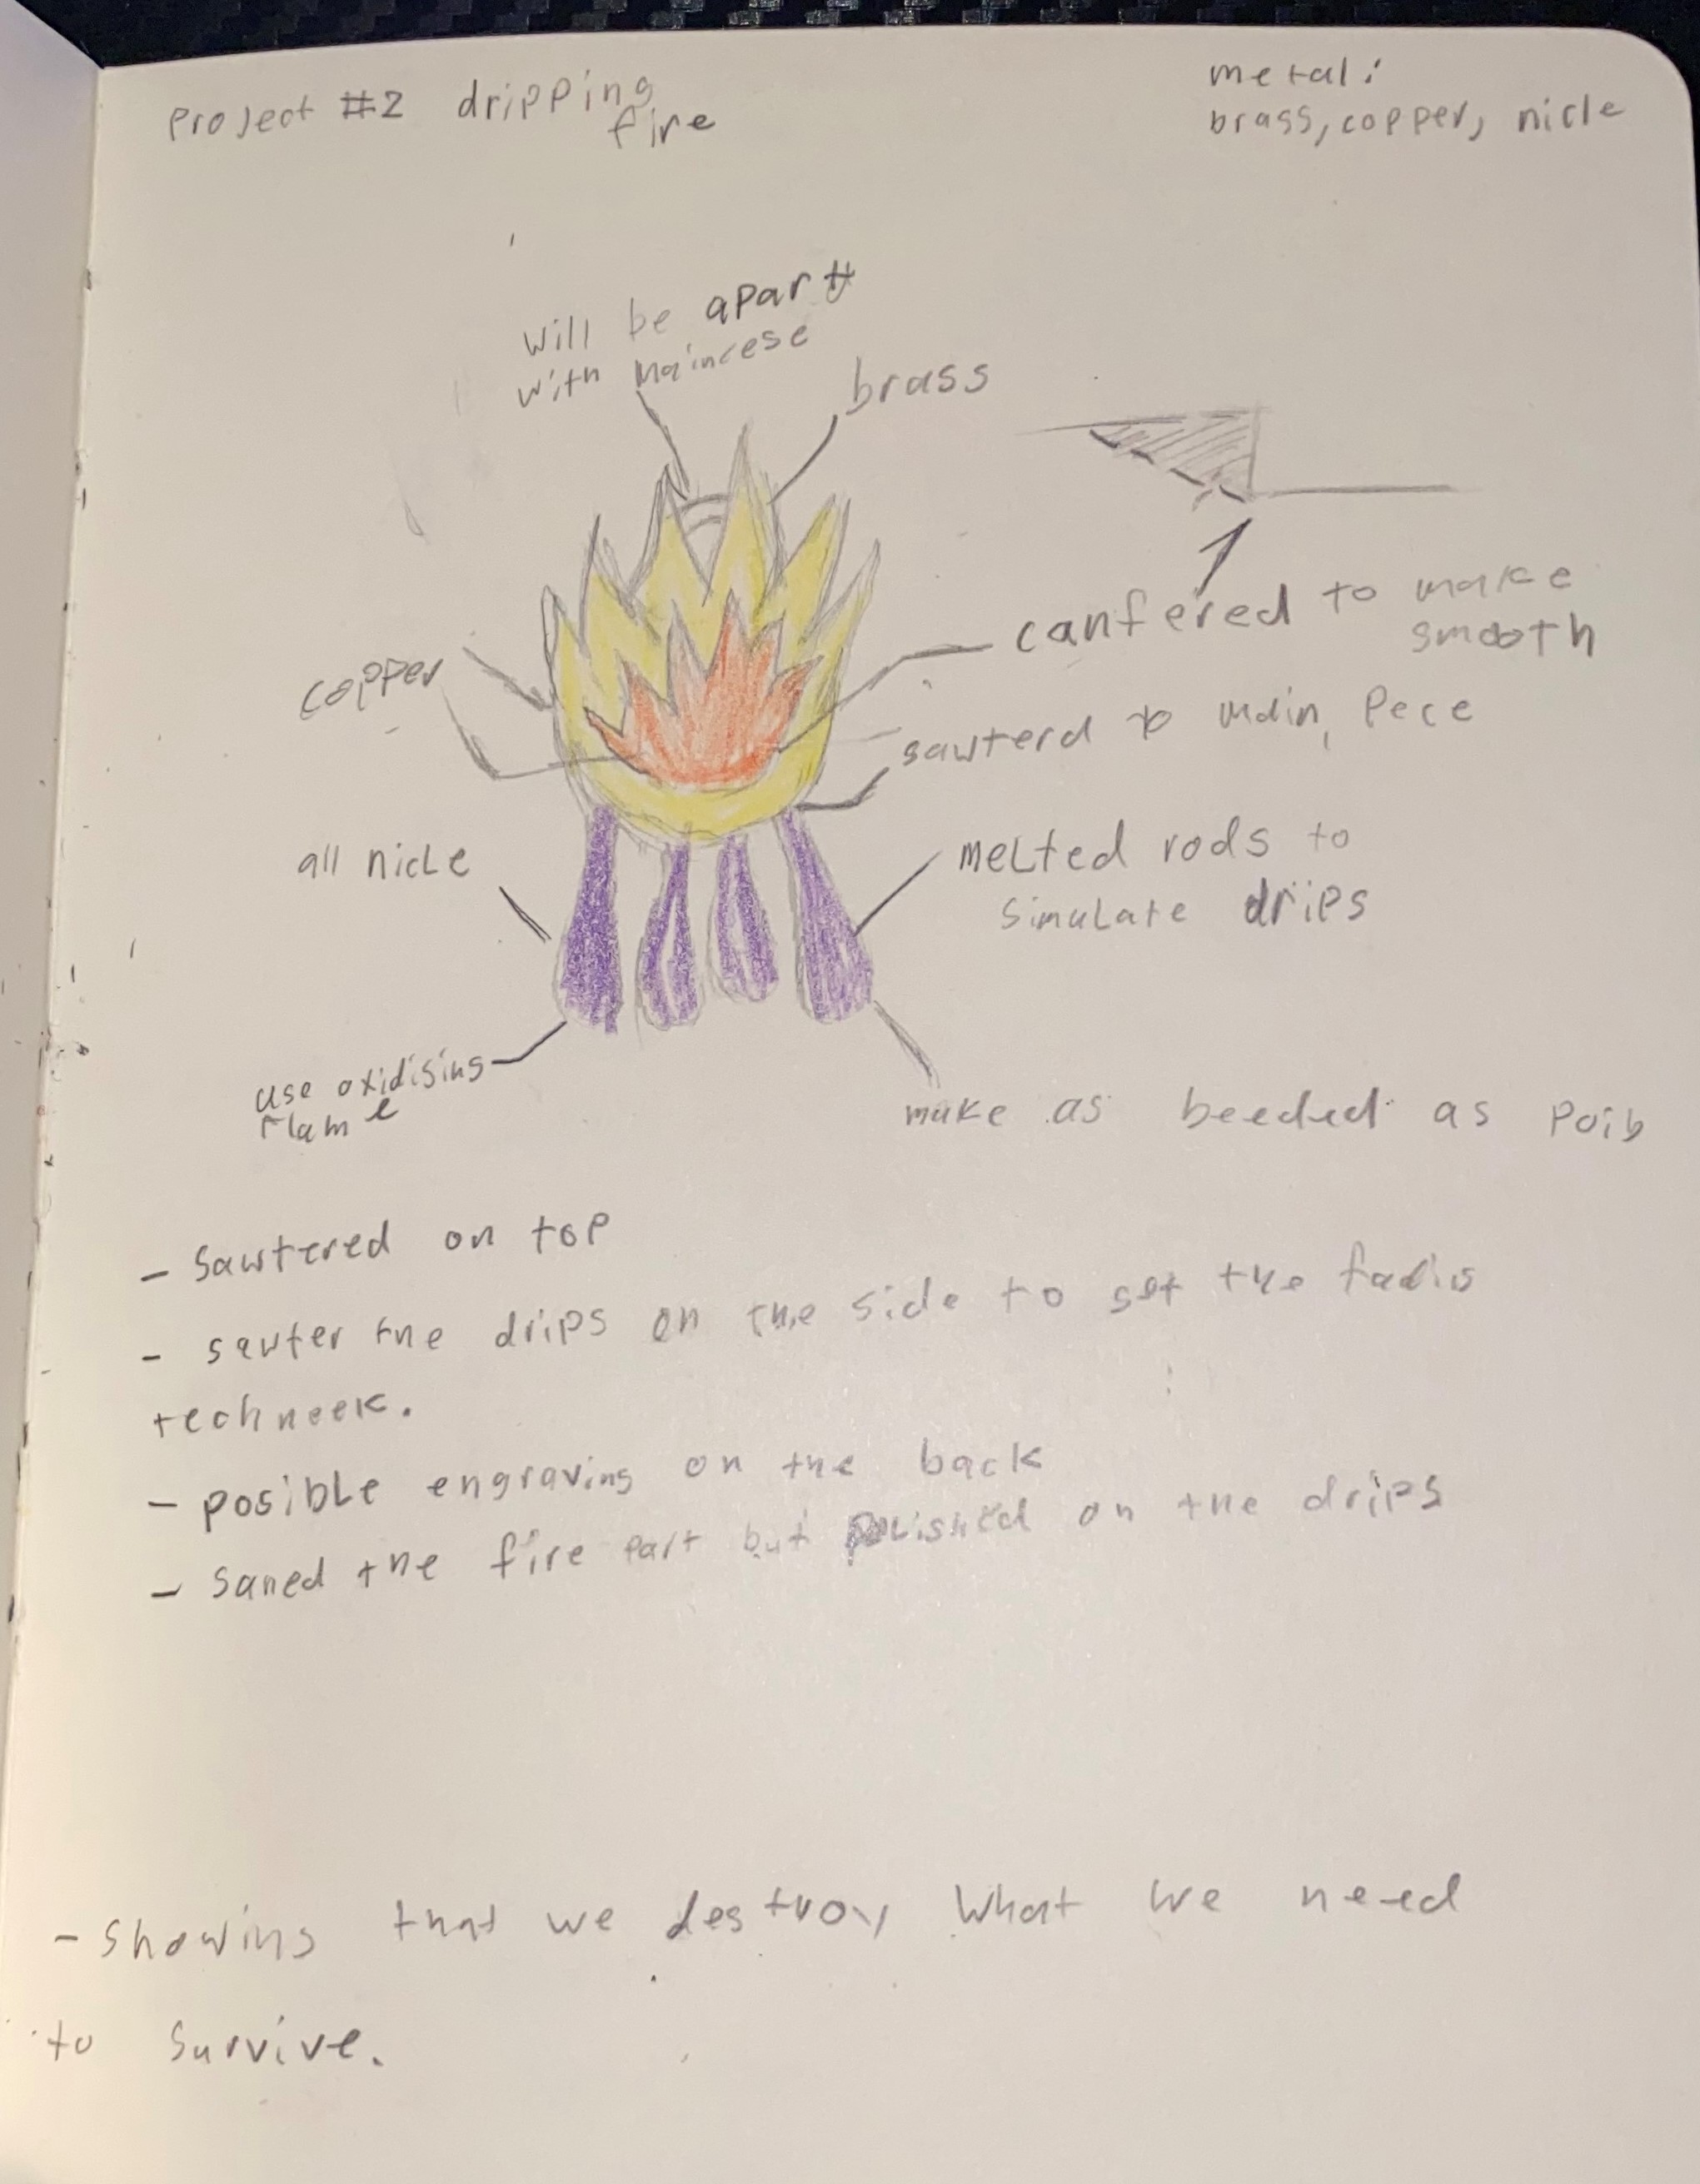 Project #2 dripping
fire
metal:
brass, copper, nicle
will be apart
with
brass
canfered to make
smooth
copper
sawterd to main Pece
all nicle
melted rods to
simulate drips
use oxidising
flame
make as beeded as
- Sawtered on top
- sawter the drips on the side to set the
techneek.
- posible engraving on the back
- saned the fire part but polished on the drips
- Showing that we destroy what we need
to survive.